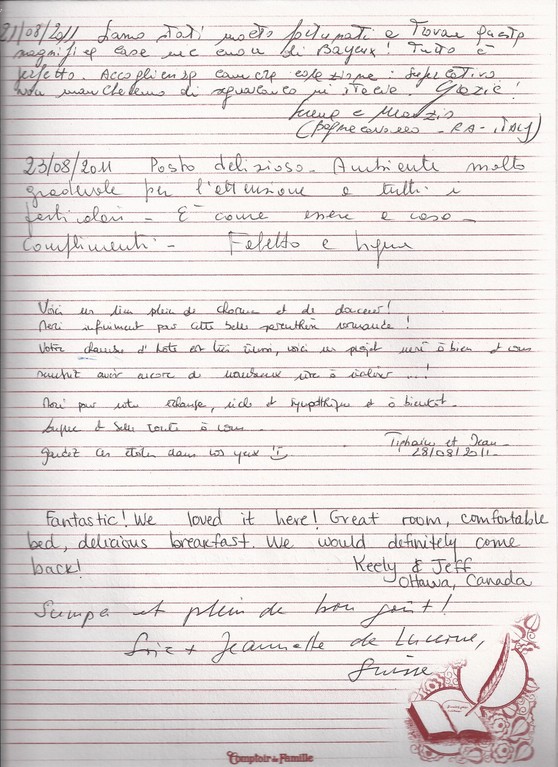 21/08/2011 Siamo stati molto fortunati a Trovare questa
magnifica casa nel cuore di Bayeux! Tutto è
perfetto. Accoglienza camera colazione: superlativo
non mancheremo di segnalarlo in Italia. Grazie!
e Maurizio
(Bagnacavallo - RA - ITALY)
23/08/2011 Posto delizioso. Ambiente molto
gradevole per l'attenzione a tutti i
particolari - E' come essere a casa -
Complimenti -
Voici un lieu plein de charme et de douceur!
Merci infiniment pour cette belle parenthèse romande!
Votre chambre d'hote est très réussi, voici un projet mené à bien et vous
souhait avoir encore de nombreux rêve à réaliser ...!
Merci pour votre échange, riche et sympathique et à bientôt.
et belle route à vous.
gardez ces étoiles dans vos yeux
Tiphaine et Jean -
28/08/2011.
Fantastic! We loved it here! Great room, comfortable
bed, delicious breakfast. We would definitely come
back!
Keely & Jeff
Ottawa, Canada
Sympa et plein de bon goût!
Eric + Jeannette de Lucerne,
Suisse
Comptoir de Famille